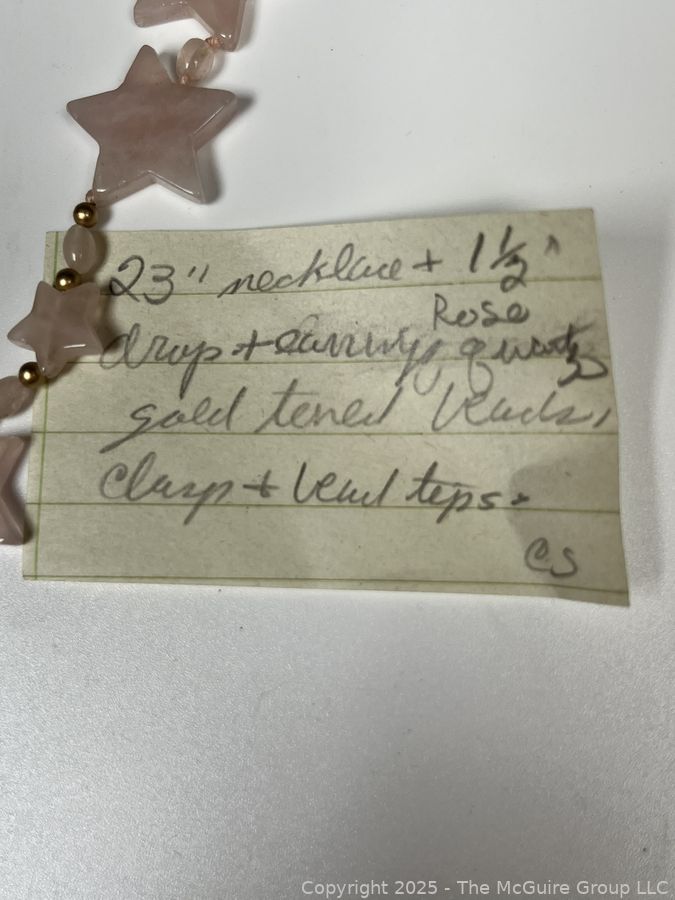 23" necklace + 1 1/2"
Rose
drop + earrings, quartz
gold toned beads,
clasp + bead tips.
CS
Copyright 2025 - The McGuire Group LLC